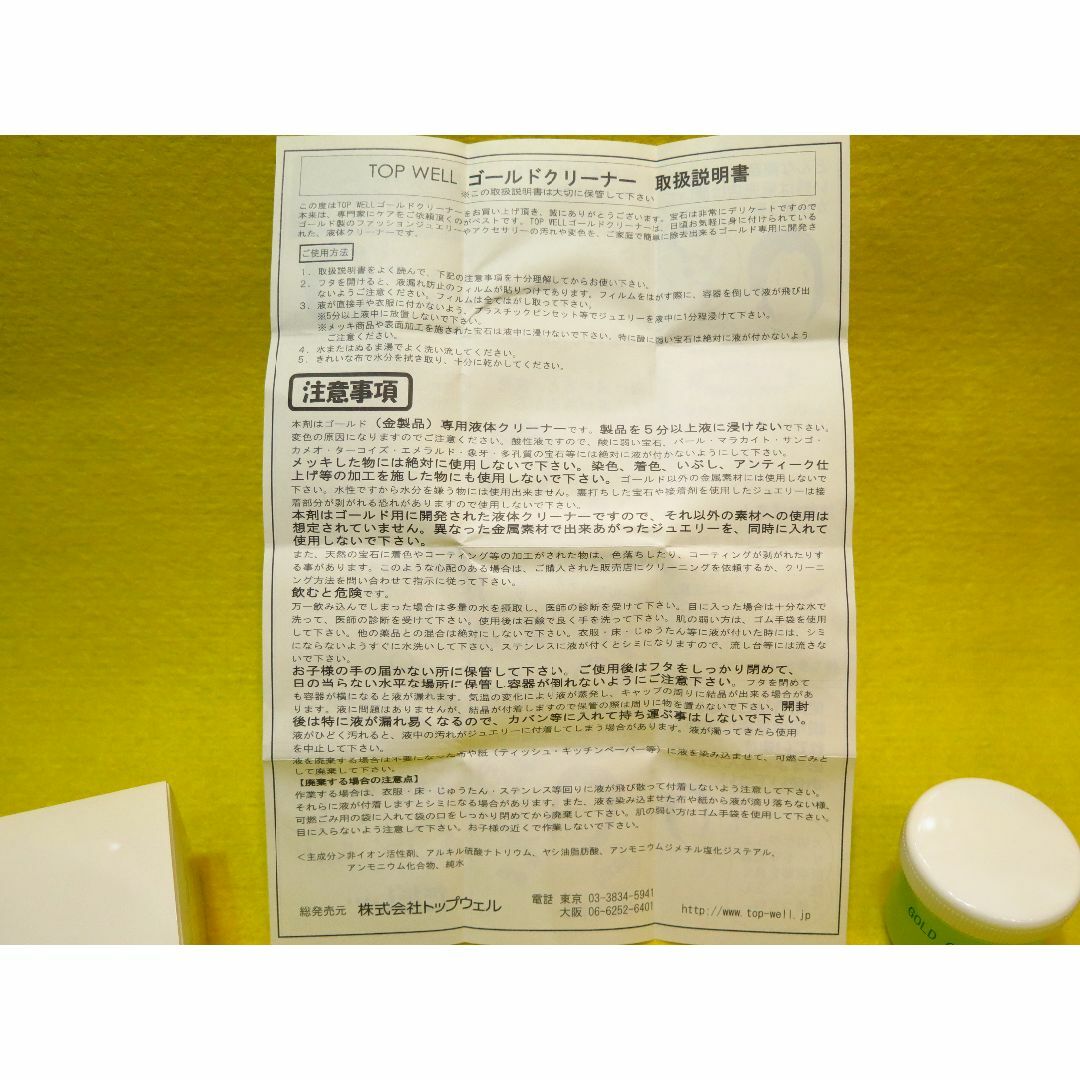 TOP WELL ゴールドクリーナー 取扱説明書
※この取扱説明書は大切に保管して下さい
この度はTOP WELLゴールドクリーナーをお買い上げ頂き、誠にありがとうございます。宝石は非常にデリケートですので
本来は、専門家にケアをご依頼頂くのがベストです。TOP WELLゴールドクリーナーは、日頃お気軽に身に付けられている
ゴールド製のファッションジュエリーやアクセサリーの汚れや変色を、ご家庭で簡単に除去出来るゴールド専用に開発さ
れた、液体クリーナーです。
ご使用方法
1. 取扱説明書をよく読んで、下記の注意事項を十分理解してからお使い下さい。
2. フタを開けると、液漏れ防止のフィルムが貼りつけてあります。フィルムをはがす際に、容器を倒して液が飛び出
ないようご注意ください。フィルムは全てはがし取って下さい。
3. 液が直接手や衣服に付かないよう、プラスチックピンセット等でジュエリーを液中に1分程浸けて下さい。
※5分以上液中に放置しないで下さい。
※メッキ商品や表面加工を施された宝石は液中に浸けないで下さい。特に酸に弱い宝石は絶対に液が付かないよう
ご注意ください。
4. 水またはぬるま湯でよく洗い流してください。
5. きれいな布で水分を拭き取り、十分に乾かしてください。
注意事項
本剤はゴールド（金製品）専用液体クリーナーです。製品を5分以上液に浸けないで下さい。
変色の原因になりますのでご注意ください。酸性液ですので、酸に弱い宝石、パール・マラカイト・サンゴ・
カメオ・ターコイズ・エメラルド・象牙・多孔質の宝石等には絶対に液が付かないようにして下さい。
メッキした物には絶対に使用しないで下さい。染色、着色、いぶし、アンティーク仕
上げ等の加工を施した物にも使用しないで下さい。ゴールド以外の金属素材には使用しないで
下さい。水性ですから水分を嫌う物には使用出来ません。裏打ちした宝石や接着剤を使用したジュエリーは接
着部分が剥がれる恐れがありますので使用しないで下さい。
本剤はゴールド用に開発された液体クリーナーですので、それ以外の素材への使用は
想定されていません。異なった金属素材で出来あがったジュエリーを、同時に入れて
使用しないで下さい。
また、天然の宝石に着色やコーティング等の加工がされた物は、色落ちしたり、コーティングが剥がれたりす
る事があります。このような心配のある場合は、ご購入された販売店にクリーニングを依頼するか、クリーニ
ング方法を問い合わせて指示に従って下さい。
飲むと危険です。
万一飲み込んでしまった場合は多量の水を摂取し、医師の診断を受けて下さい。目に入った場合は十分な水で
洗って、医師の診断を受けて下さい。使用後は石鹸で良く手を洗って下さい。肌の弱い方は、ゴム手袋を使用
して下さい。他の薬品との混合は絶対にしないで下さい。衣服・床・じゅうたん等に液が付いた時には、シミ
にならないようすぐに水洗いして下さい。ステンレスに液が付くとシミになりますので、流し台等には流さな
いで下さい。
お子様の手の届かない所に保管して下さい。ご使用後はフタをしっかり閉めて、
日の当らない水平な場所に保管し容器が倒れないようにご注意下さい。フタを閉めて
も容器が横になると液が漏れます。気温の変化により液が蒸発し、キャップの周りに結晶が出来る場合があ
ります。液に問題はありませんが、結晶が付着しますので保管の際は周りに物を置かないで下さい。開封
後は特に液が漏れ易くなるので、カバン等に入れて持ち運ぶ事はしないで下さい。
液がひどく汚れると、液中の汚れがジュエリーに付着してしまう場合があります。液が濁ってきたら使用
を中止して下さい。
液を廃棄する場合は不要になった布や紙（ティッシュ・キッチンペーパー等）に液を染み込ませて、可燃ごみと
して廃棄して下さい。
【廃棄する場合の注意点】
作業する場合は、衣服・床・じゅうたん・ステンレス等回りに液が飛び散って付着しないよう注意して下さい。
それらに液が付着しますとシミになる場合があります。また、液を染み込ませた布や紙から液が滴り落ちない様、
可燃ごみ用の袋に入れて袋の口をしっかり閉めてから廃棄して下さい。肌の弱い方はゴム手袋を使用して下さい。
目に入らないよう注意して下さい。お子様の近くで作業しないで下さい。
＜主成分＞非イオン活性剤、アルキル硫酸ナトリウム、ヤシ油脂肪酸、アンモニウムジメチル塩化ジステアル、
アンモニウム化合物、純水
総発売元 株式会社トップウェル
電話 東京 03-3834-5941
大阪 06-6252-6401
http://www.top-well.jp
GOLD